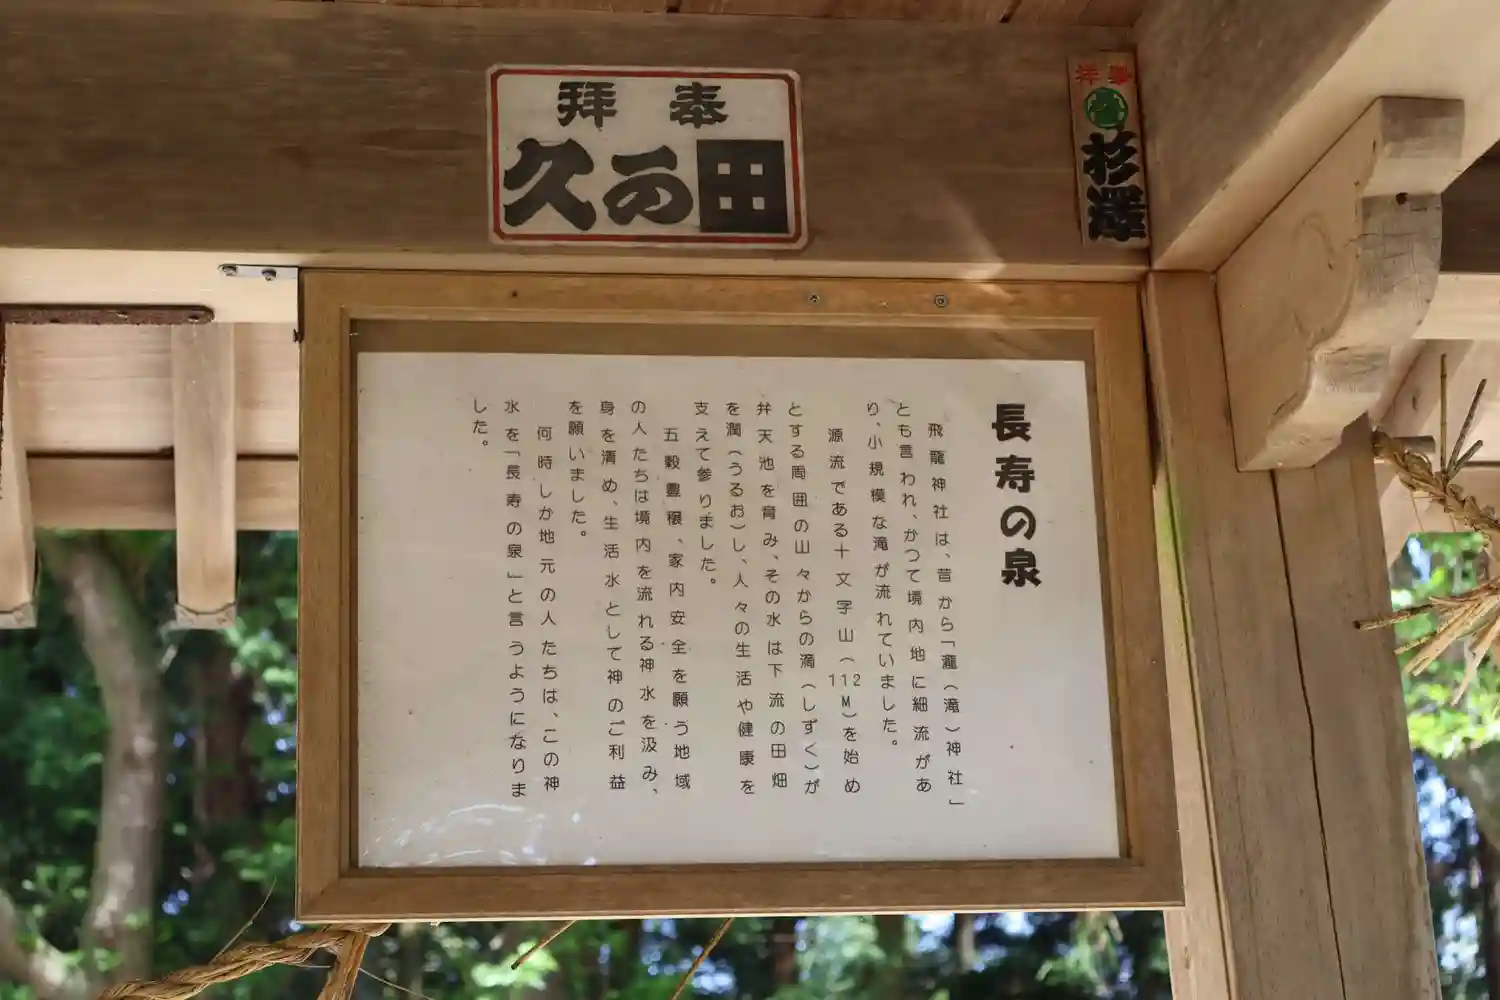 奉拝
田の久
奉拝
杉澤
長寿の泉
飛龍神社は、昔から「瀧(滝)神社」
とも言われ、かつて境内地に細流があ
り、小規模な滝が流れていました。
源流である十文字山(112M)を始め
とする周囲の山々からの滴(しずく)が
弁天池を育み、その水は下流の田畑
を潤(うるお)し、人々の生活や健康を
支えて参りました。
五穀豊穣、家内安全を願う地域
の人たちは境内を流れる神水を汲み、
身を清め、生活水として神のご利益
を願いました。
何時しか地元の人たちは、この神
水を「長寿の泉」と言うようになりま
した。